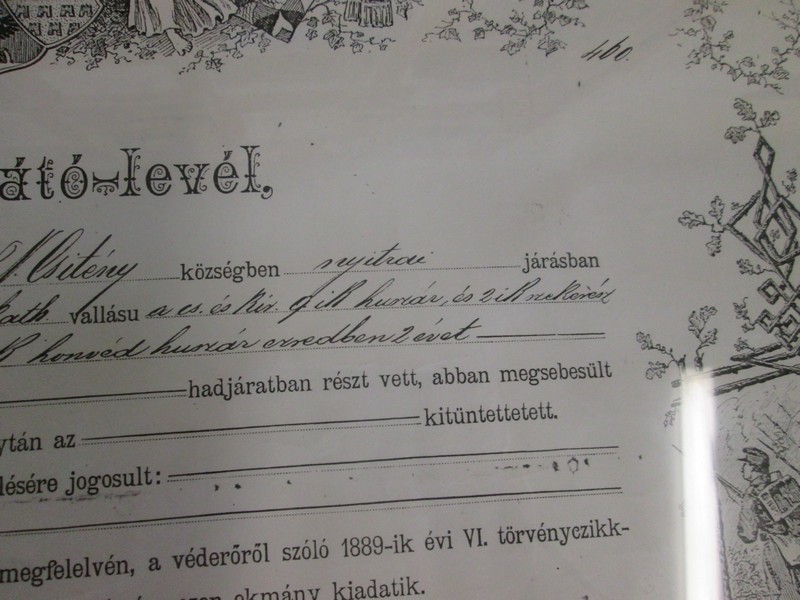 460.
átó-levél,
N. Csitény községben nyitrai járásban
kath vallásu a cs. és kir. 9 ik huszár, és 2 ik szekerész
honvéd huszár ezredben 2 évet
hadjáratban részt vett, abban megsebesült
ytán az kitüntettetett.
lésére jogosult:
megfelelvén, a véderőről szóló 1889-ik évi VI. törvényczikk-
ezen okmány kiadatik.